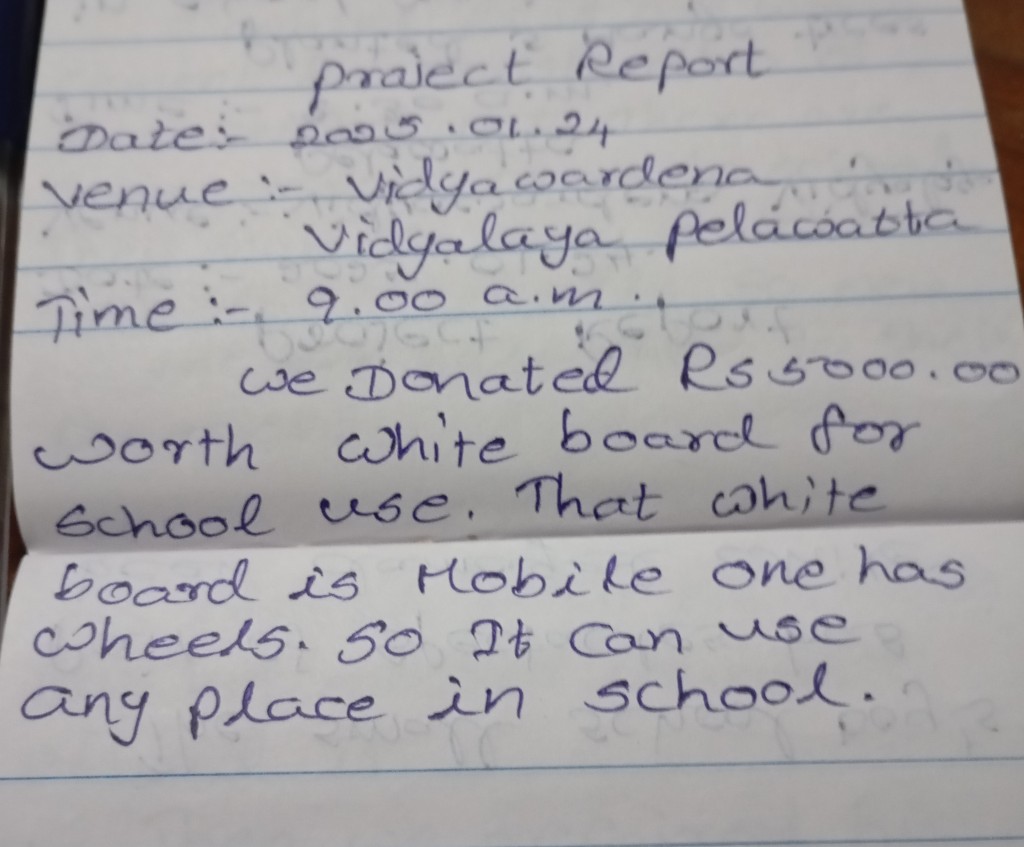 Project Report
Date:- 2025.01.24
Venue :- Vidyawardena
Vidyalaya Pelawatta
Time :- 9.00 a.m.
We Donated Rs 5000.00
worth white board for
school use. That white
board is Mobile one has
wheels. So It Can use
any place in school.